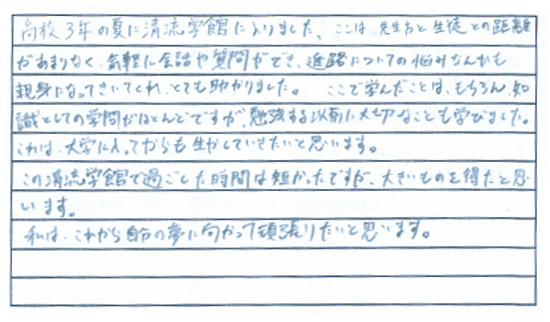 高校3年の夏に清流学館に入りました。ここは先生方と生徒との距離
があまりなく、気軽に会話や質問ができ、進路についての悩みなんかも
親身になってきいてくれ、とても助かりました。ここで学んだことは、もちろん知
識としての学問がほとんどですが、勉強する以前に大切なことも学びました。
これは、大学に入ってからも生かしていきたいと思います。
この清流学館で過ごした時間は短かったですが、大きいものを得たと思
います。
私は、これから自分の夢に向かって頑張りたいと思います。